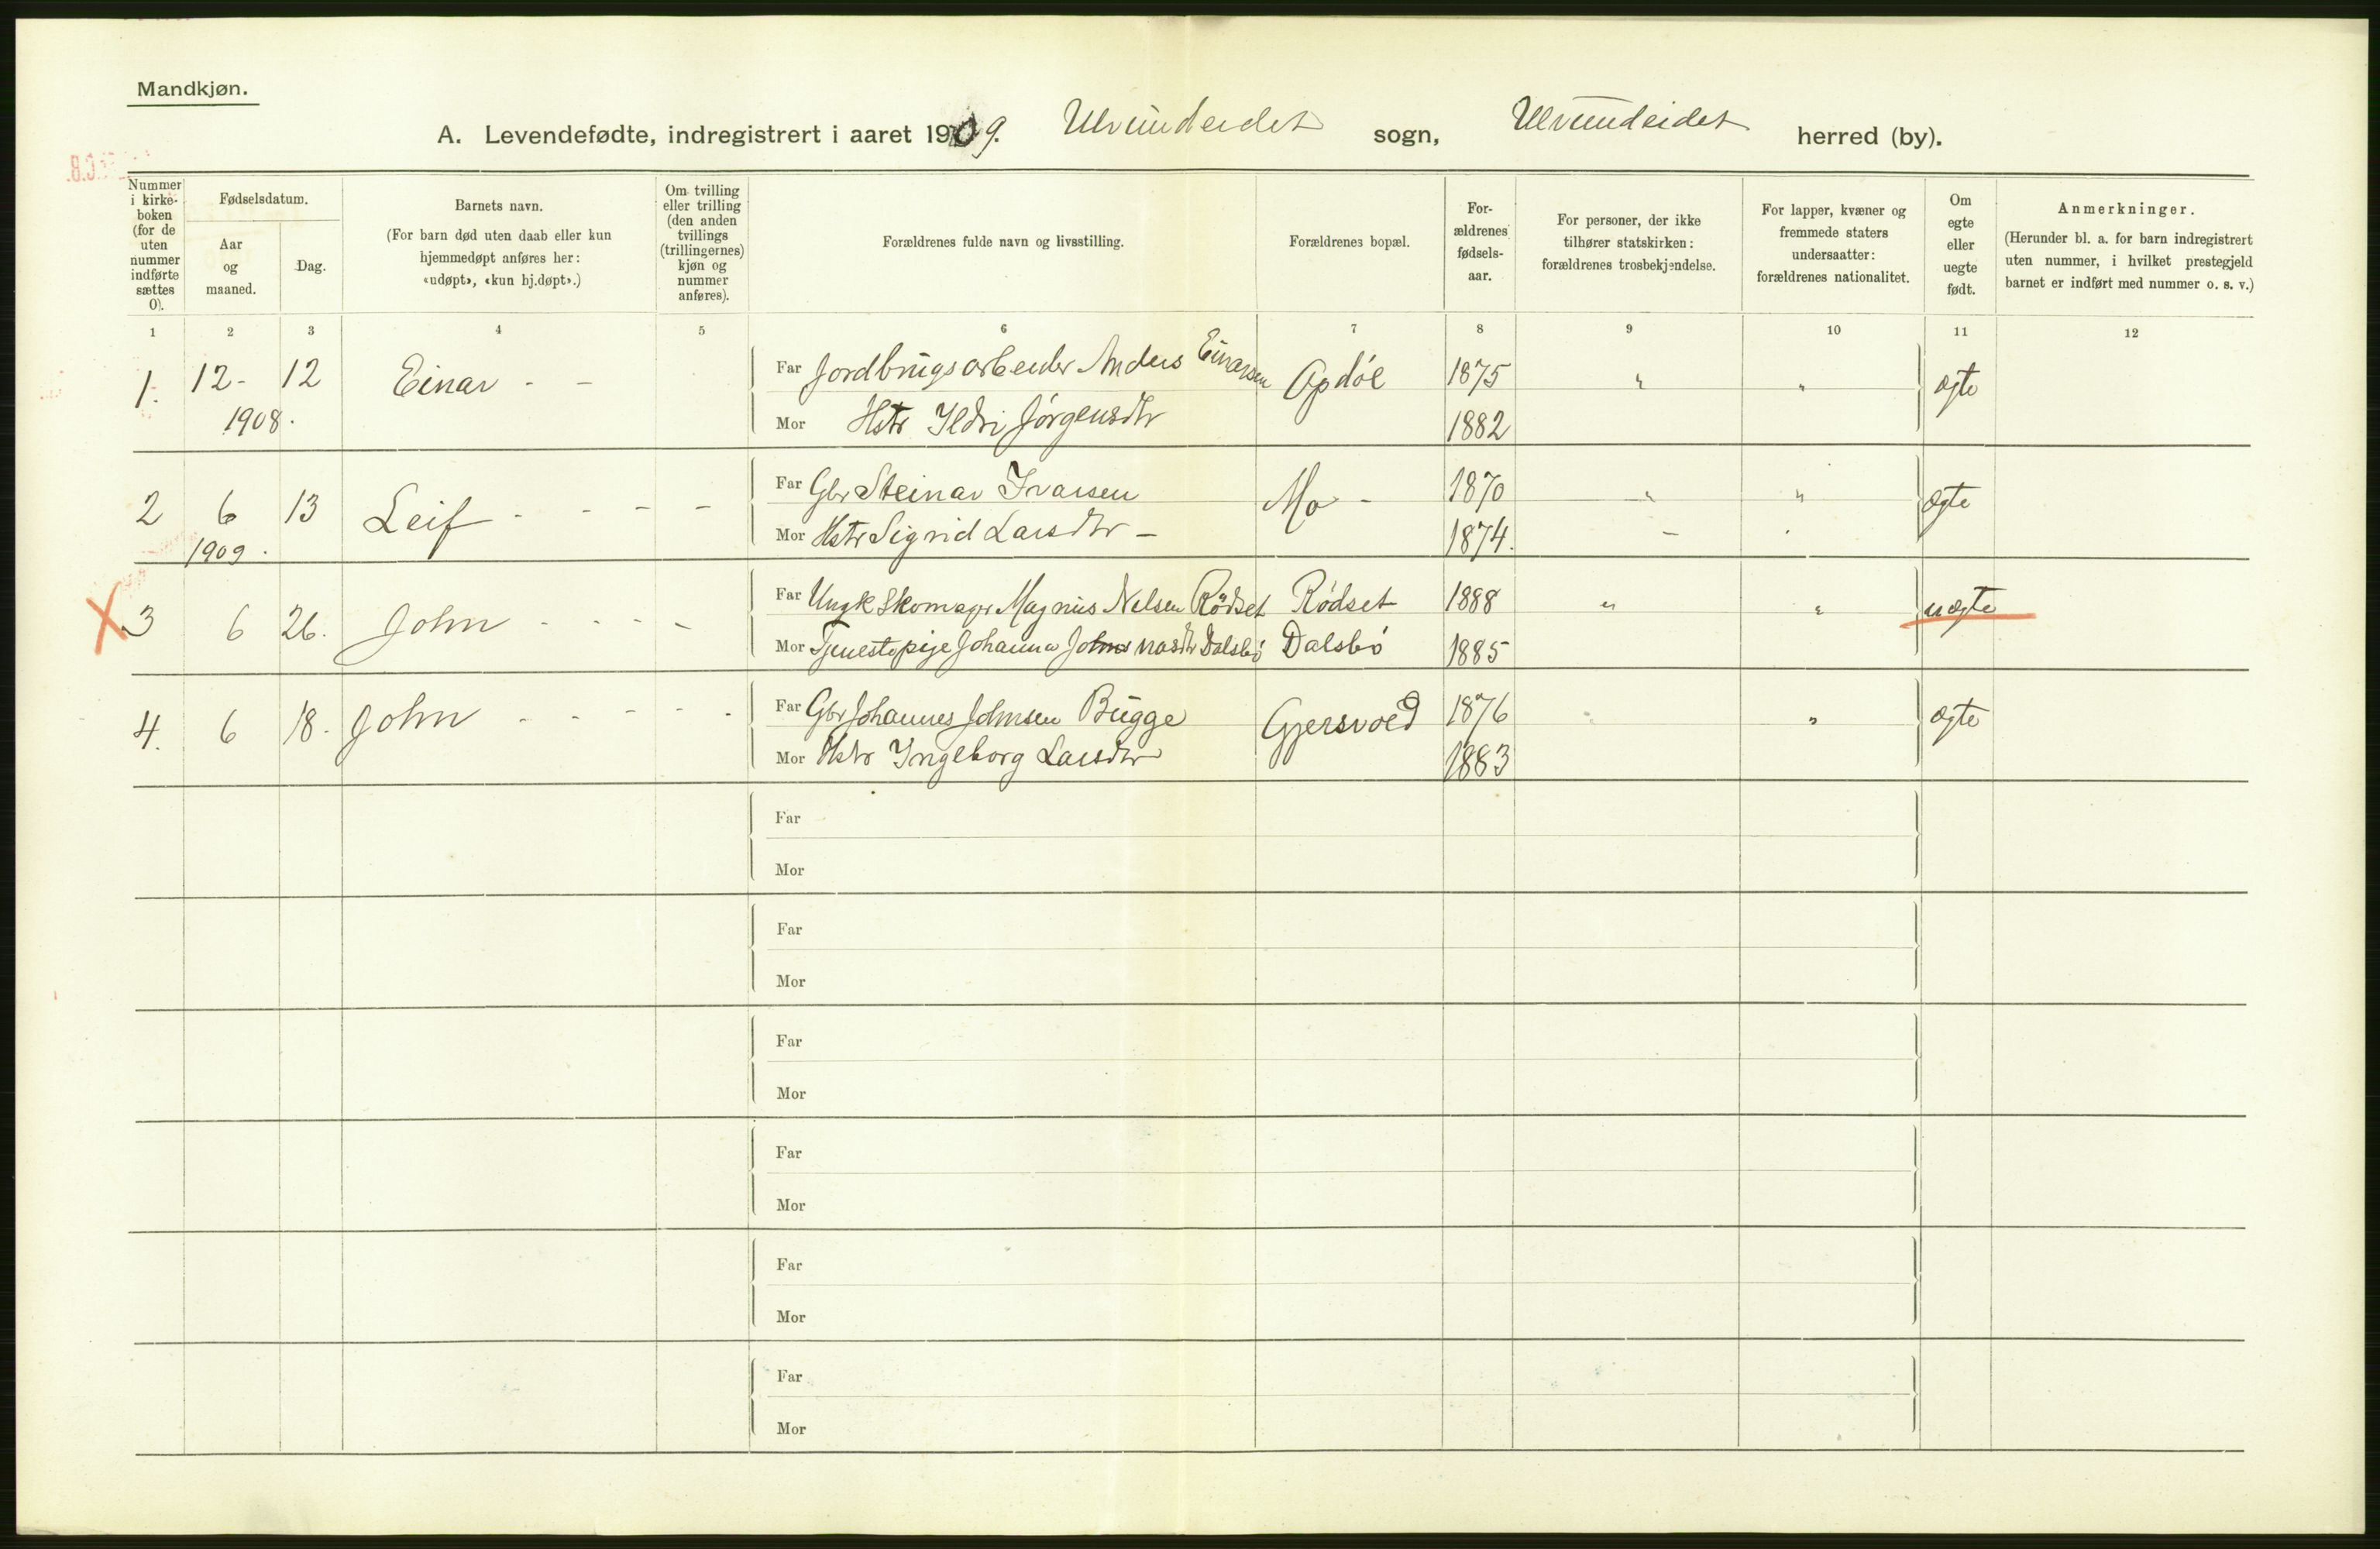 Mandkjøn.
A. Levendefødte, indregistrert i aaret 1909. Ulvundeidet sogn, Ulvundeidet herred (by).
Nummer i kirke-boken (for de uten nummer indførte sættes 0).
Fødselsdatum.
Aar og maaned.
Dag.
Barnets navn.
(For barn død uten daab eller kun hjemmedøpt anføres her: «udøpt», «kun bj.døpt».)
Om tvilling eller trilling (den anden tvillings (trillingernes) kjøn og nummer anføres).
Forældrenes fulde navn og livsstilling.
Forældrenes bopæl.
For-ældrenes fødsels-aar.
For personer, der ikke tilhører statskirken: forældrenes trosbekjendelse.
For lapper, kvæner og fremmede staters undersaatter: forældrenes nationalitet.
Om egte eller uegte født.
Anmerkninger.
(Herunder bl. a. for barn indregistrert uten nummer, i hvilket prestegjeld barnet er indført med nummer o. s. v.)
1 2 3 4 5 6 7 8 9 10 11 12
1. 12- 12 Einar - - Far Jordbrugsarbeider Anders Einarsen Opdøl 1875 " " ægte
1908. Mor Hstr Ildri Jørgensdtr 1882
2 6 13 Leif - - - - Far Gbr Steinar Ivarsen Mo - 1870 " " ægte
1909. Mor Hstr Sigrid Larsdtr - 1874. -
3 6 26. John - - - - Far Ungk Skomager Magnus Nelsen Rødset Rødset 1888 " " uægte
Mor Tjenestepige Johanna Johns nasdtr Dalsbø Dalsbø 1885
4. 6 18. John - - - - - Far Gbr Johannes Johnsen Bugge Gjersvold 1876 " ægte
Mor Hstr Ingeborg Larsdtr 1883
Far
Mor
Far
Mor
Far
Mor
Far
Mor
Far
Mor
Far
Mor